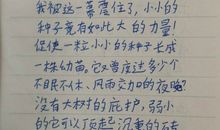 我被这一幕震住了,小小的
种子竟有如此大的力量!
促使一粒小小的种子长成
一株幼苗,它又要度过多少个
不眠不休、风雨交加的夜晚?
没有大树的庇护,弱小
的它可以顶起沉重的砖